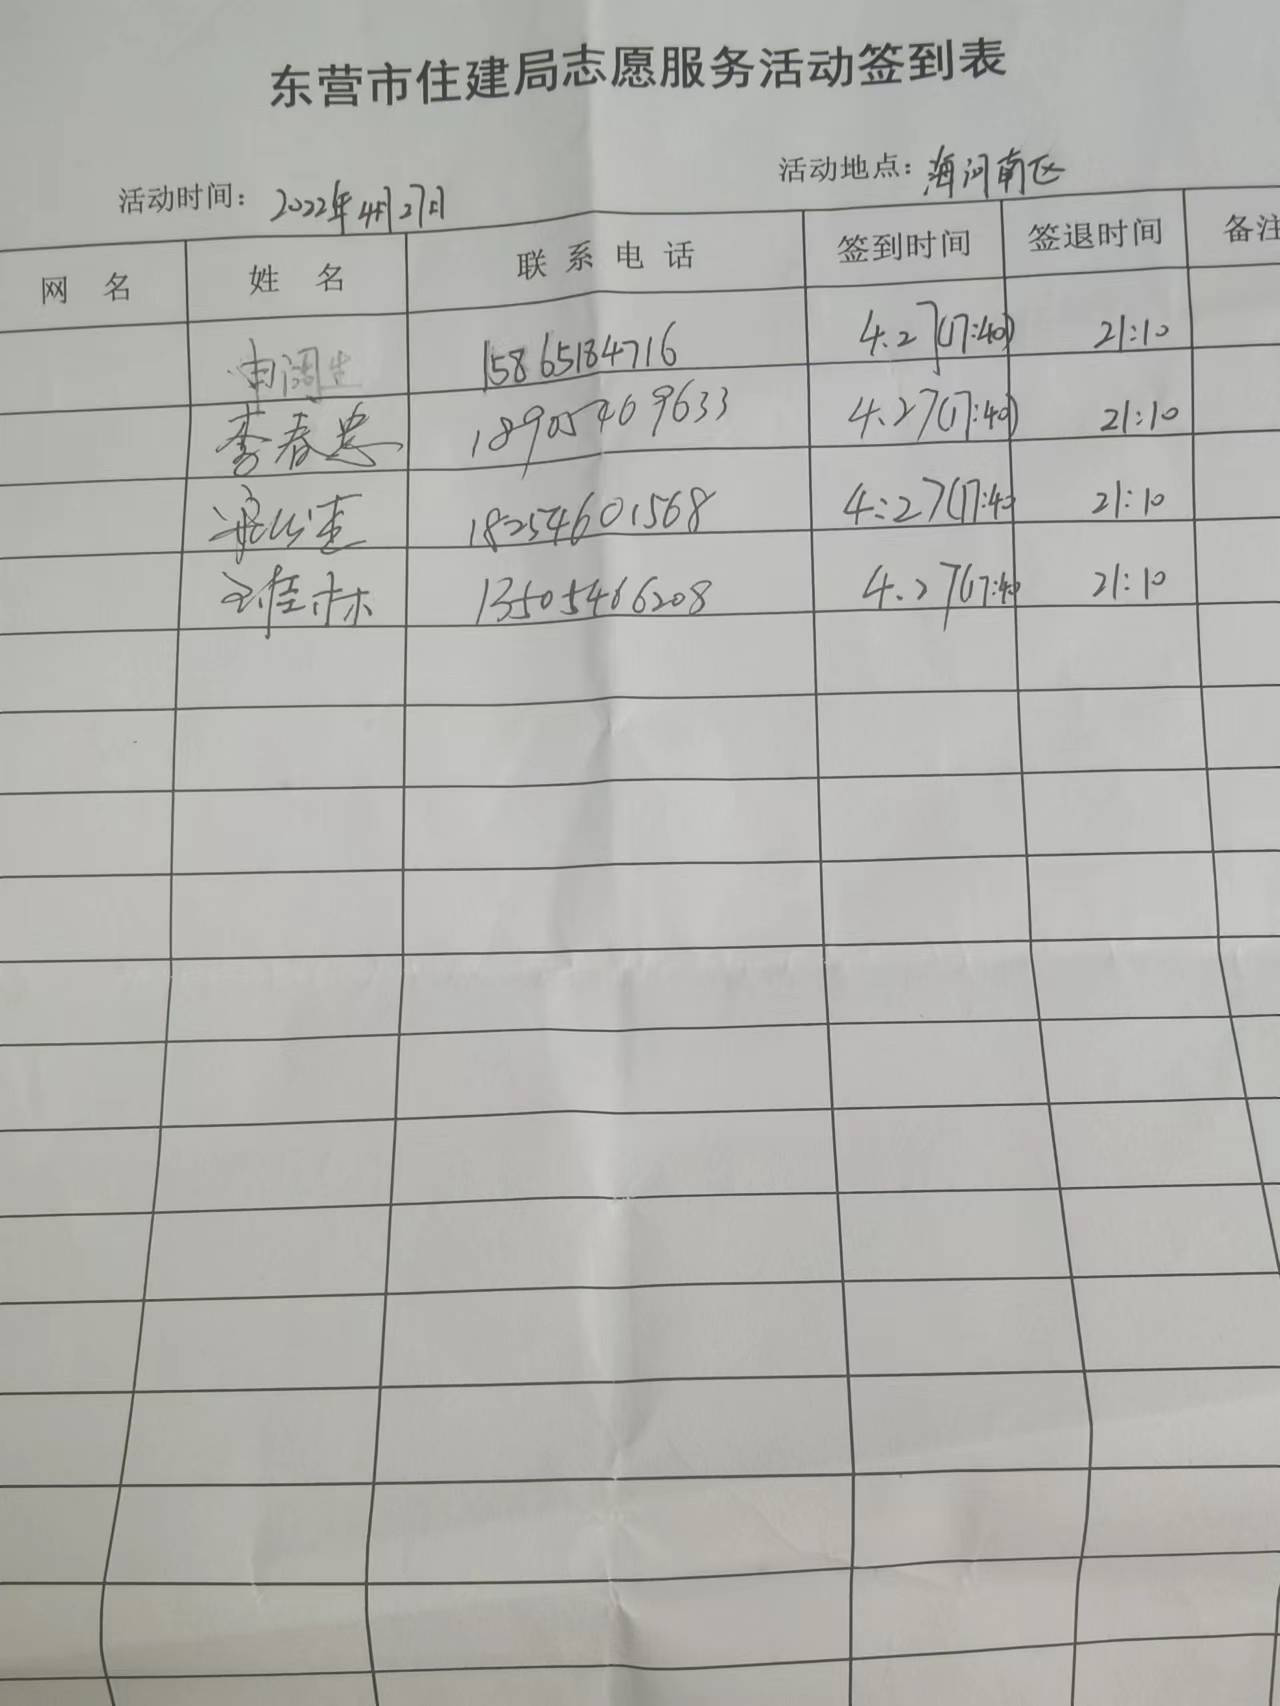 东营市住建局志愿服务活动签到表
活动时间：2022年4月27日 活动地点：海河南区
网名 姓名 联系电话 签到时间 签退时间 备注
15865184716 4.27(17:40) 21:10
李春忠 18905469633 4.27(17:40) 21:10
18254601568 4:27(17:40 21:10
王佳林 13505466208 4.27(17:40 21:10